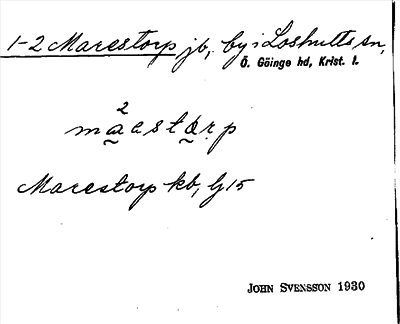 1-2 Marestorp jb, by i Loshults sn,
Ö. Göinge hd, Krist. l.
2
Marestorp kb, lj 15
JOHN SVENSSON 1930